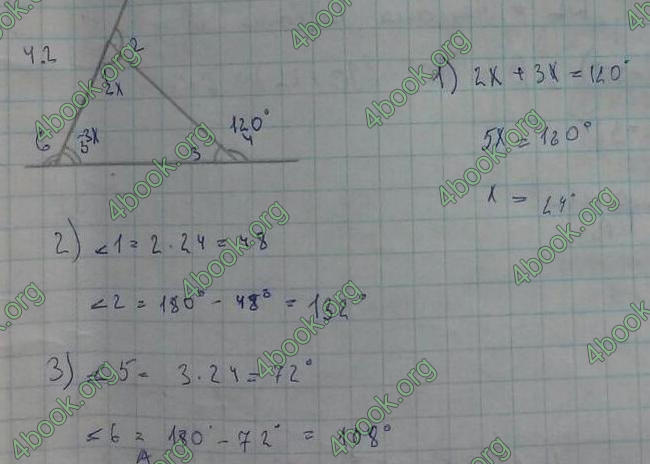 4.2
2
2x
120°
6
3x
5
3
4
1) 2x + 3x = 120°
5x = 120°
x = 24°
2) <1 = 2·24 = 48
<2 = 180° - 48° = 132°
3) <5 = 3·24 = 72°
<6 = 180° - 72° = 108°
4book.org
4book.org
4book.org
4book.org
4book.org
4book.org
4book.org
4book.org
4book.org
4book.org
4book.org
4book.org